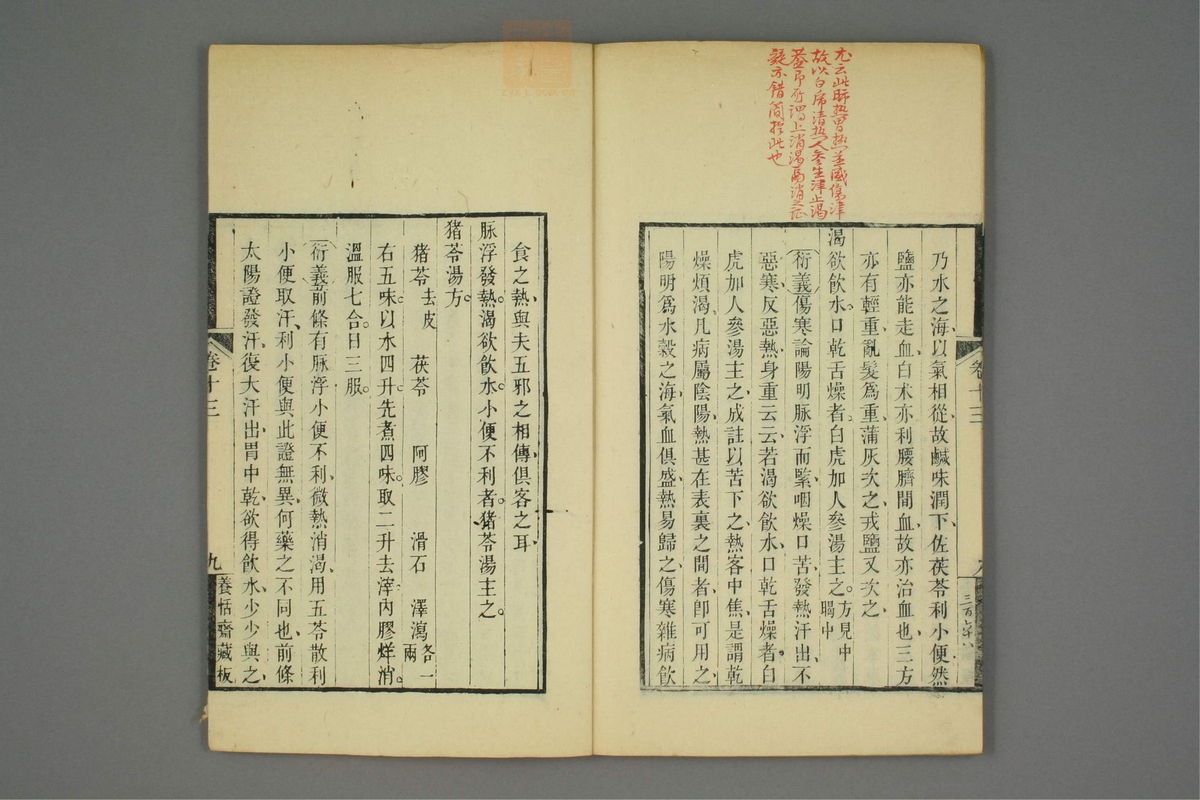 尤云此肺热胃热並盛傷津
故以白虎清热人參生津止渴
蓋即所謂上消渴膈消之症
疑亦錯簡於此也
乃水之海以氣相從故鹹味潤下佐茯苓利小便然
鹽亦能走血白朮亦利腰臍間血故亦治血也三方
亦有輕重亂髮爲重蒲灰次之戎鹽又次之
渴欲飲水口乾舌燥者白虎加人參湯主之方見中暍中
衍義傷寒論陽明脉浮而緊咽燥口苦發熱汗出不
惡寒反惡熱身重云云若渴欲飲水口乾舌燥者白
虎加人參湯主之成註以苦下之熱客中焦是謂乾
燥煩渴凡病屬陰陽熱甚在表裏之間者卽可用之
陽明爲水穀之海氣血俱盛熱易歸之傷寒雜病飲
卷十三
食之熱與夫五邪之相傳俱客之耳
脉浮發熱渴欲飲水小便不利者猪苓湯主之
猪苓湯方
猪苓去皮 茯苓 阿膠 滑石 澤瀉各一兩
右五味以水四升先煮四味取二升去滓內膠烊消
溫服七合日三服
衍義前條有脉浮小便不利微熱消渴用五苓散利
小便取汗利小便與此證無異何藥之不同也前條
太陽證發汗復大汗出胃中乾欲得飲水少少與之
卷十三
九
養恬齋藏板